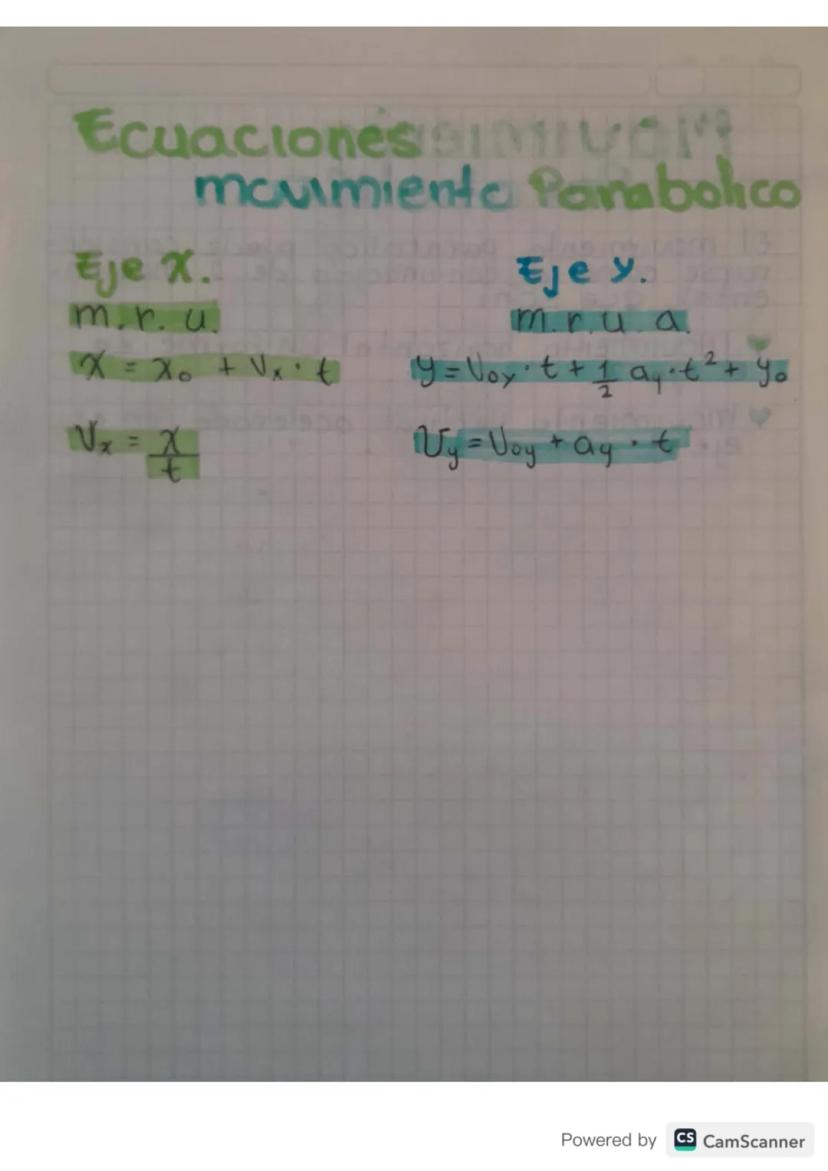 Ecuaciones
movimiento Parabolico
Eje X.
m. r. u.
x = x₀ + Vₓ · t
Vₓ = x/t
Eje y.
m. r. u. a.
y = V₀y · t + 1/2 ay · t² + y₀
Vy = V₀y + ay · t
Powered by CS CamScanner